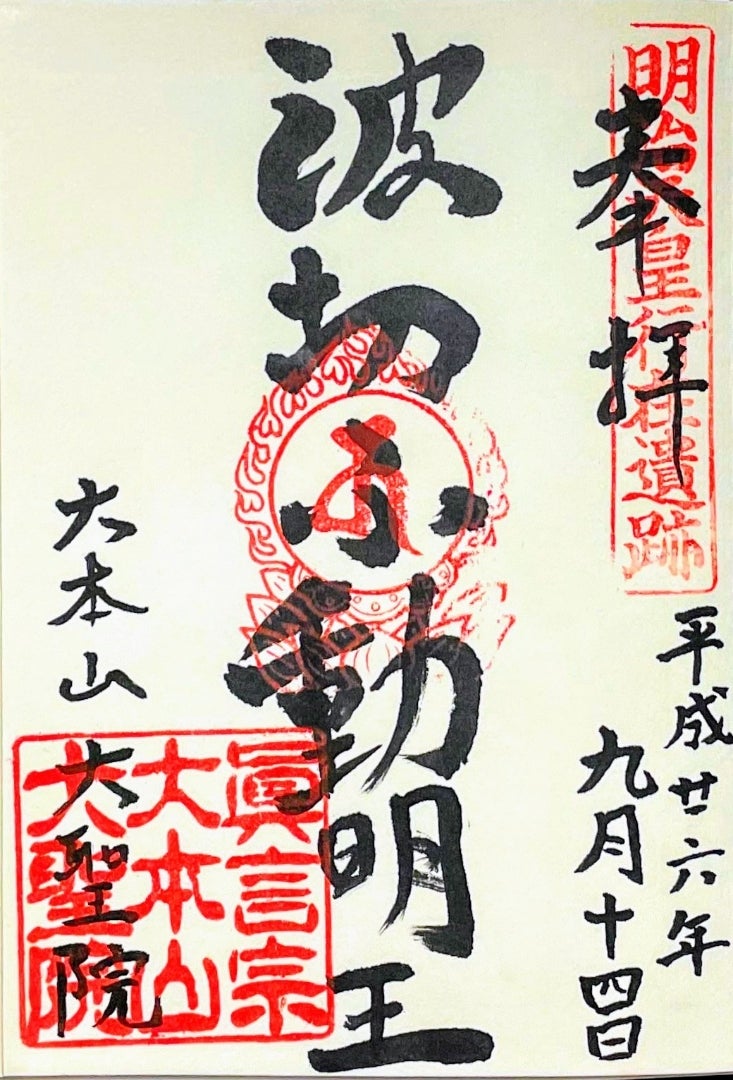 奉拝
明治天皇行在遺跡
平成廿六年
九月十四日
波切不動明王
大本山
大聖院
眞言宗
大本山
大聖院